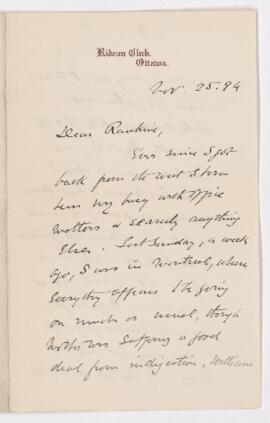 Rideau Club,
Ottawa.
Nov. 25. 94
Dear Rankine,
Ever since I got
back from the west I have
been very busy with office
matters & scarcely anything
else. Last Sunday, a week
ago, I was in Montreal, where
everything appears to be going
on much as usual, though
Mother was suffering a good
deal from indigestion, William